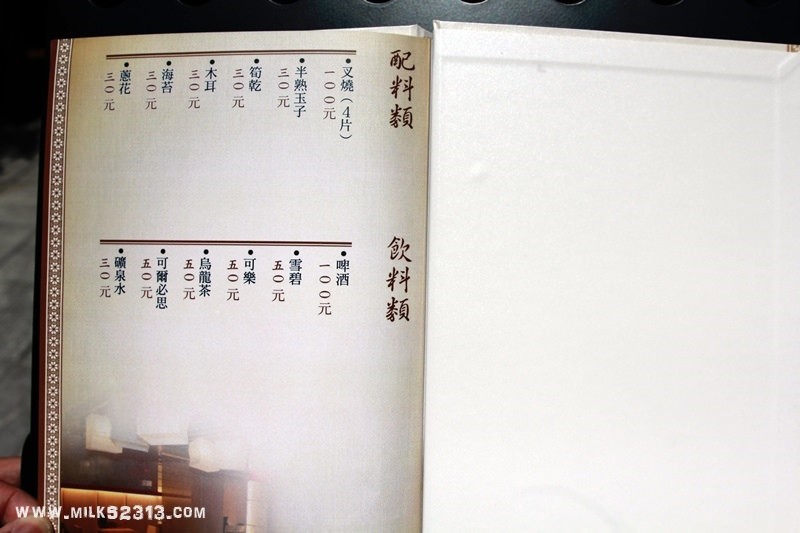 配料類
叉燒（4片）
一００元
半熟玉子
三０元
筍乾
三０元
木耳
三０元
海苔
三０元
蔥花
三０元
飲料類
啤酒
一００元
雪碧
五０元
可樂
五０元
烏龍茶
五０元
可爾必思
五０元
礦泉水
三０元
WWW.MILK92313.COM